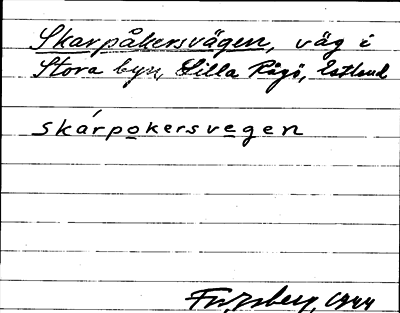 Skarpåkersvägen, väg i
Stora byn, Lilla Rågö, Estland
skárpokersvegen
1944